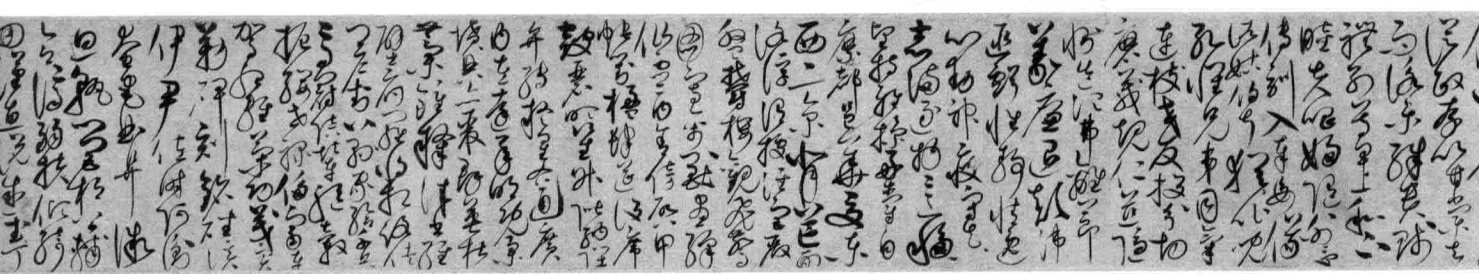 從政存以甘棠去
而益詠樂殊貴賤
禮別尊卑上和下
睦夫唱婦隨外受
傅訓入奉母儀
諸姑伯叔猶子比兒
孔懷兄弟同氣
連枝交友投分切
磨箴規仁慈隱
惻造次弗離節
義廉退顛沛
匪虧性靜情逸
心動神疲守真
志滿逐物意移
堅持雅操好爵自
縻都邑華夏東
西二京背芒面
洛浮渭據涇宮殿
盤鬱樓觀飛驚
圖寫禽獸畫彩
仙靈丙舍傍啟甲
帳對楹肆筵設席
鼓瑟吹笙升階納陛
弁轉疑星右通廣
內左達承明既集
墳典亦聚群英杜
稿鍾隸漆書
壁經府羅將相路俠
槐卿戶封八縣家給千
兵高冠陪輦驅轂
振纓世祿侈富車
駕肥輕策功茂實
勒碑刻銘磻溪
伊尹佐時阿衡
奄宅曲阜微
旦孰營桓公匡
合濟弱扶傾綺
回漢惠說感武丁